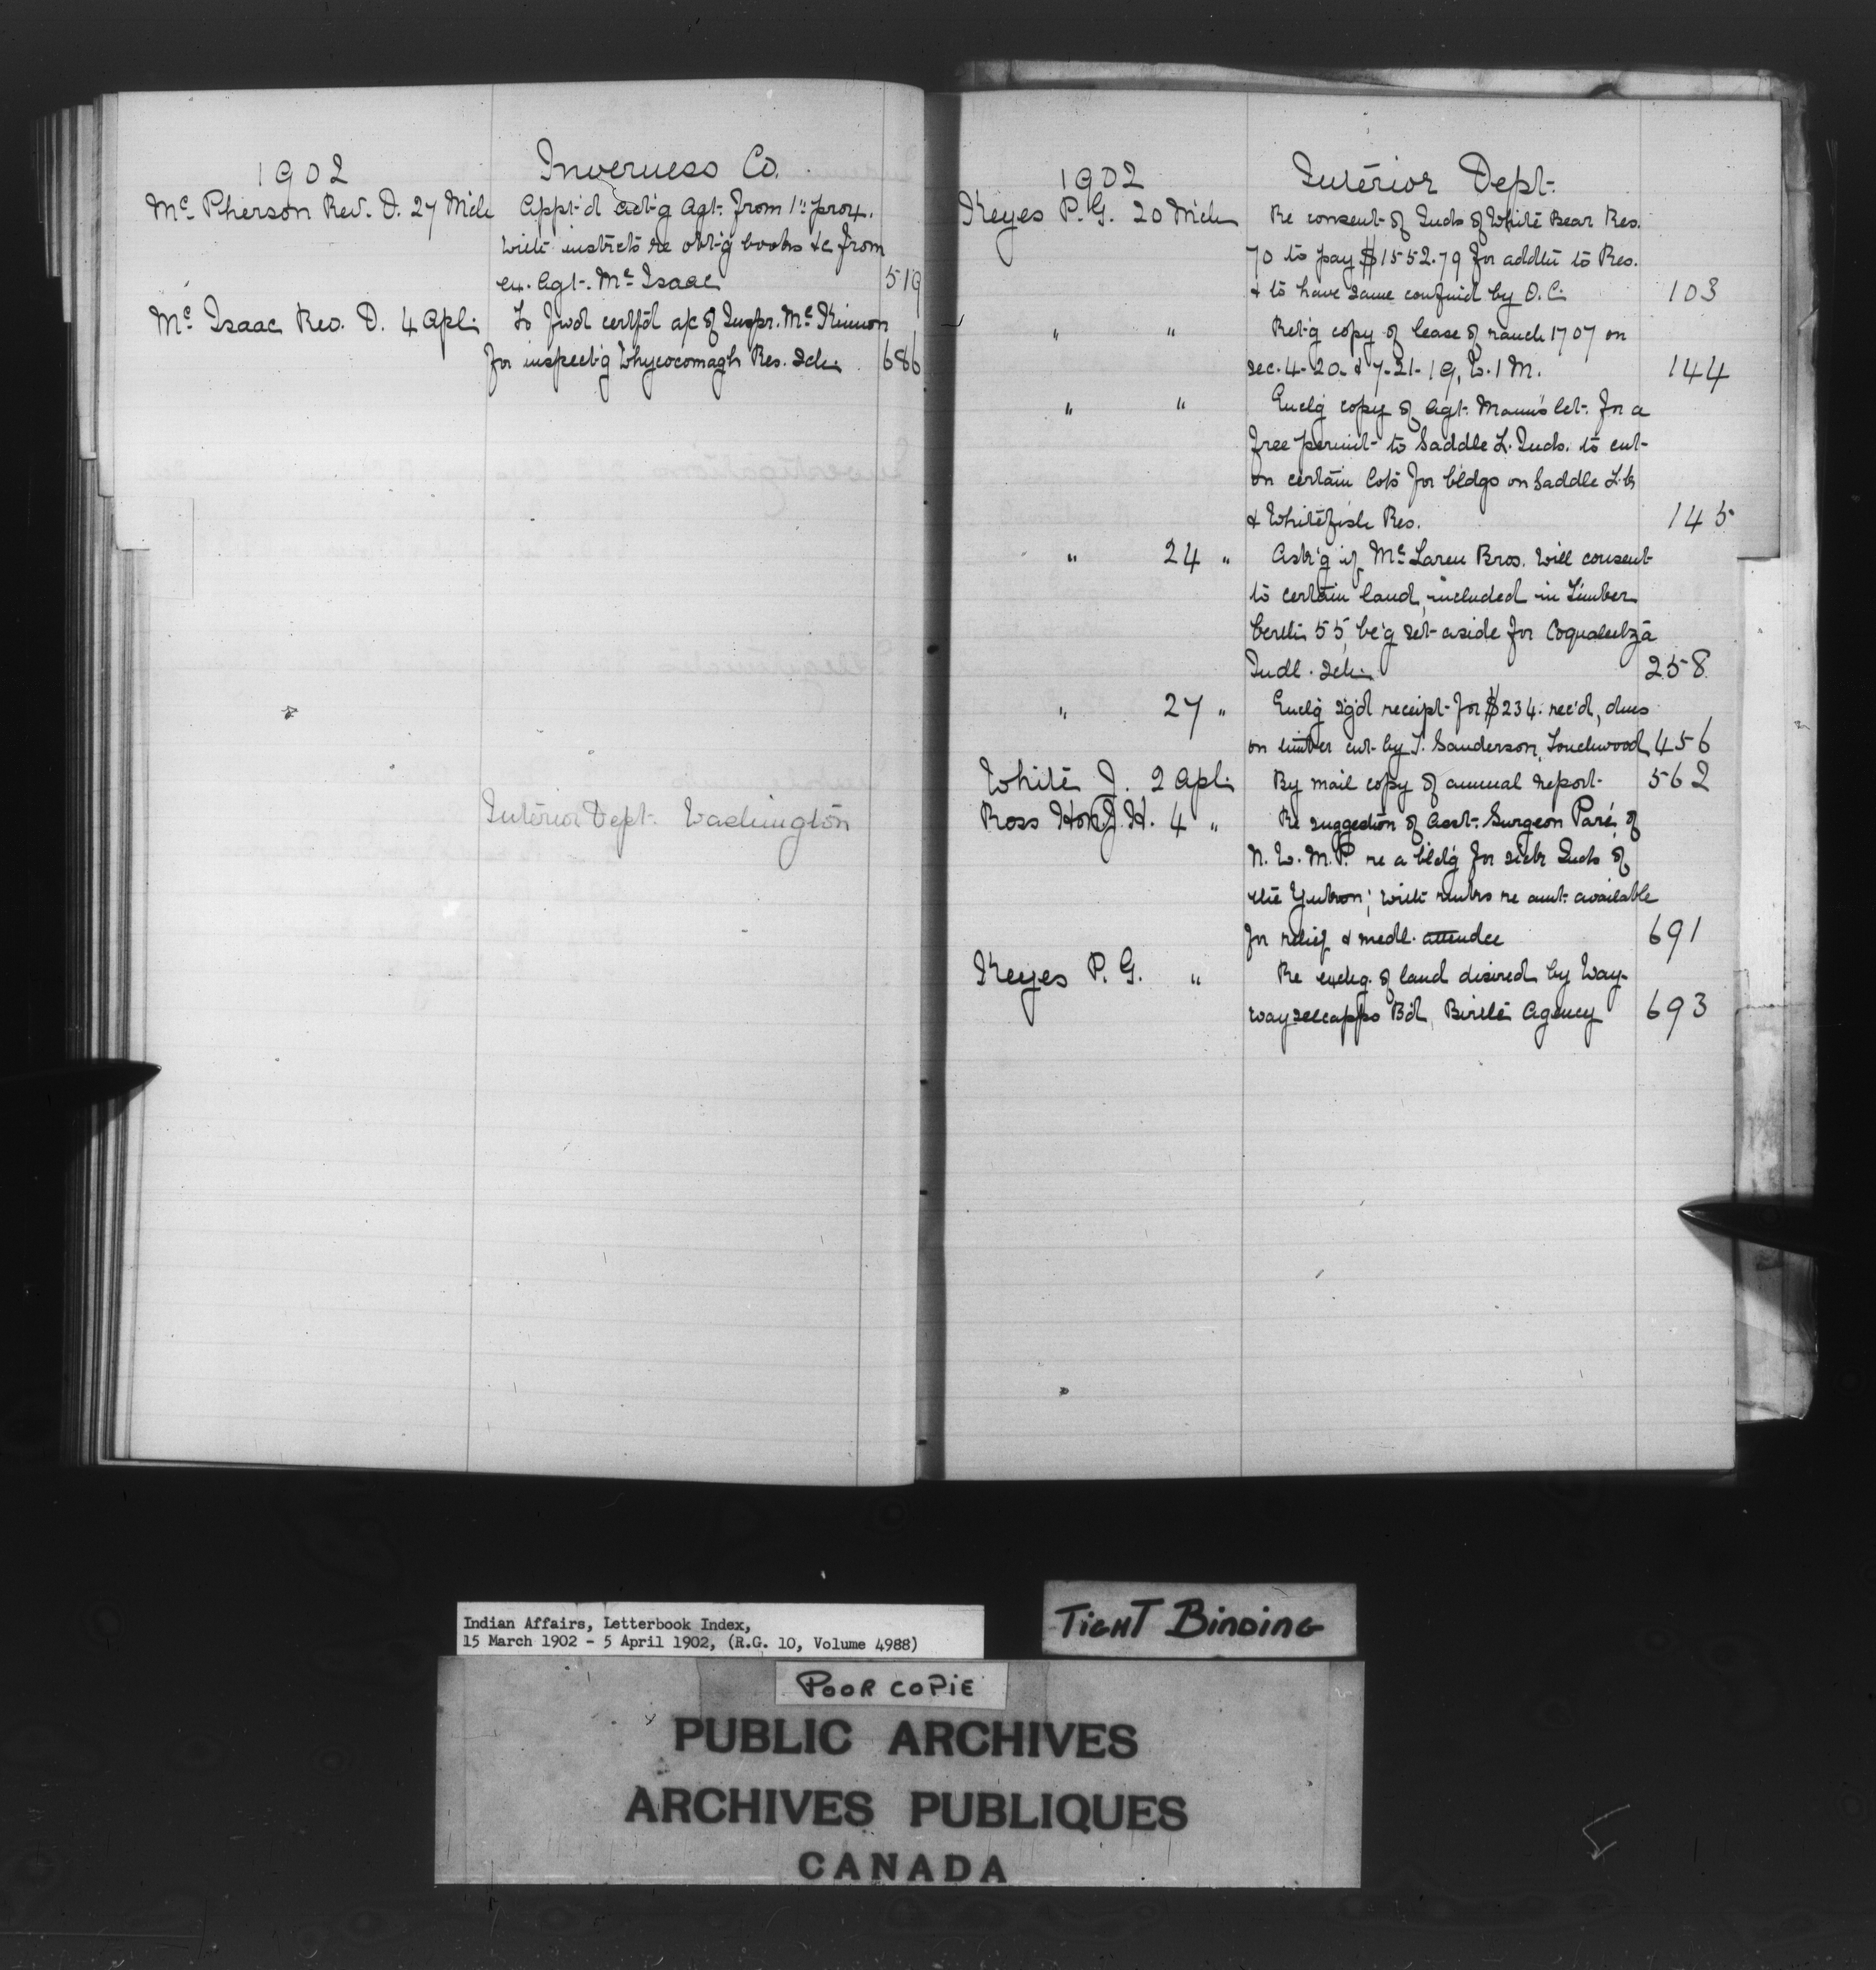 1902 Inverness Co.
Mc Pherson Rev. D. 27 Mch Appt'd act'g Agt. from 1st prox.
with instrcts re obt'g books &c from
ex. Agt. Mc Isaac 519
Mc Isaac Rev. D. 4 Apl. To fwd certf'd a/c of Inspr. Mc Kinnon
for inspect'g Whycocomagh Res. Sch. 686
Interior Dept. Washington
1902 Interior Dept.
Keyes P. G. 20 Mch Re consent of Inds of White Bear Res.
70 to pay $1552.79 for addtn to Res.
& to have same confmd by O.C. 103
" " Ret'g copy of lease of ranch 1707 on
sec. 4-20 & 7-21-19, W. 1 M. 144
" " Enclg copy of Agt. Mann's let. for a
free permit to Saddle L. Inds. to cut
on certain lots for bldgs on Saddle Lk
& Whitefish Res. 145
" 24 " Ask'g if Mc Laren Bros. will consent
to certain land, included in Timber
berth 55, be'g set aside for Coqualeetza
Indl. Sch. 258
" 27 " Enclg sg'd receipt for $234. rec'd, dues
on timber cut by J. Sanderson, Touchwood 456
White J. 2 Apl. By mail copy of annual report 562
Ross Hon J. H. 4 " Re suggestion of Asst. Surgeon Paré of
N. W. M. P. re a bld'g for sick Inds of
the Yukon; with rmks re amt. available
for relief & medl. attendce 691
Keyes P. G. " Re exchg. of land desired by Way-
wayseecappo Bd, Birtle Agency 693
Indian Affairs, Letterbook Index,
15 March 1902 - 5 April 1902, (R.G. 10, Volume 4988)
TIGHT BINDING
POOR COPIE
PUBLIC ARCHIVES
ARCHIVES PUBLIQUES
CANADA